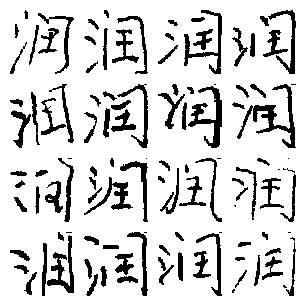 润润润润
润润润润
润润润润
润润润润